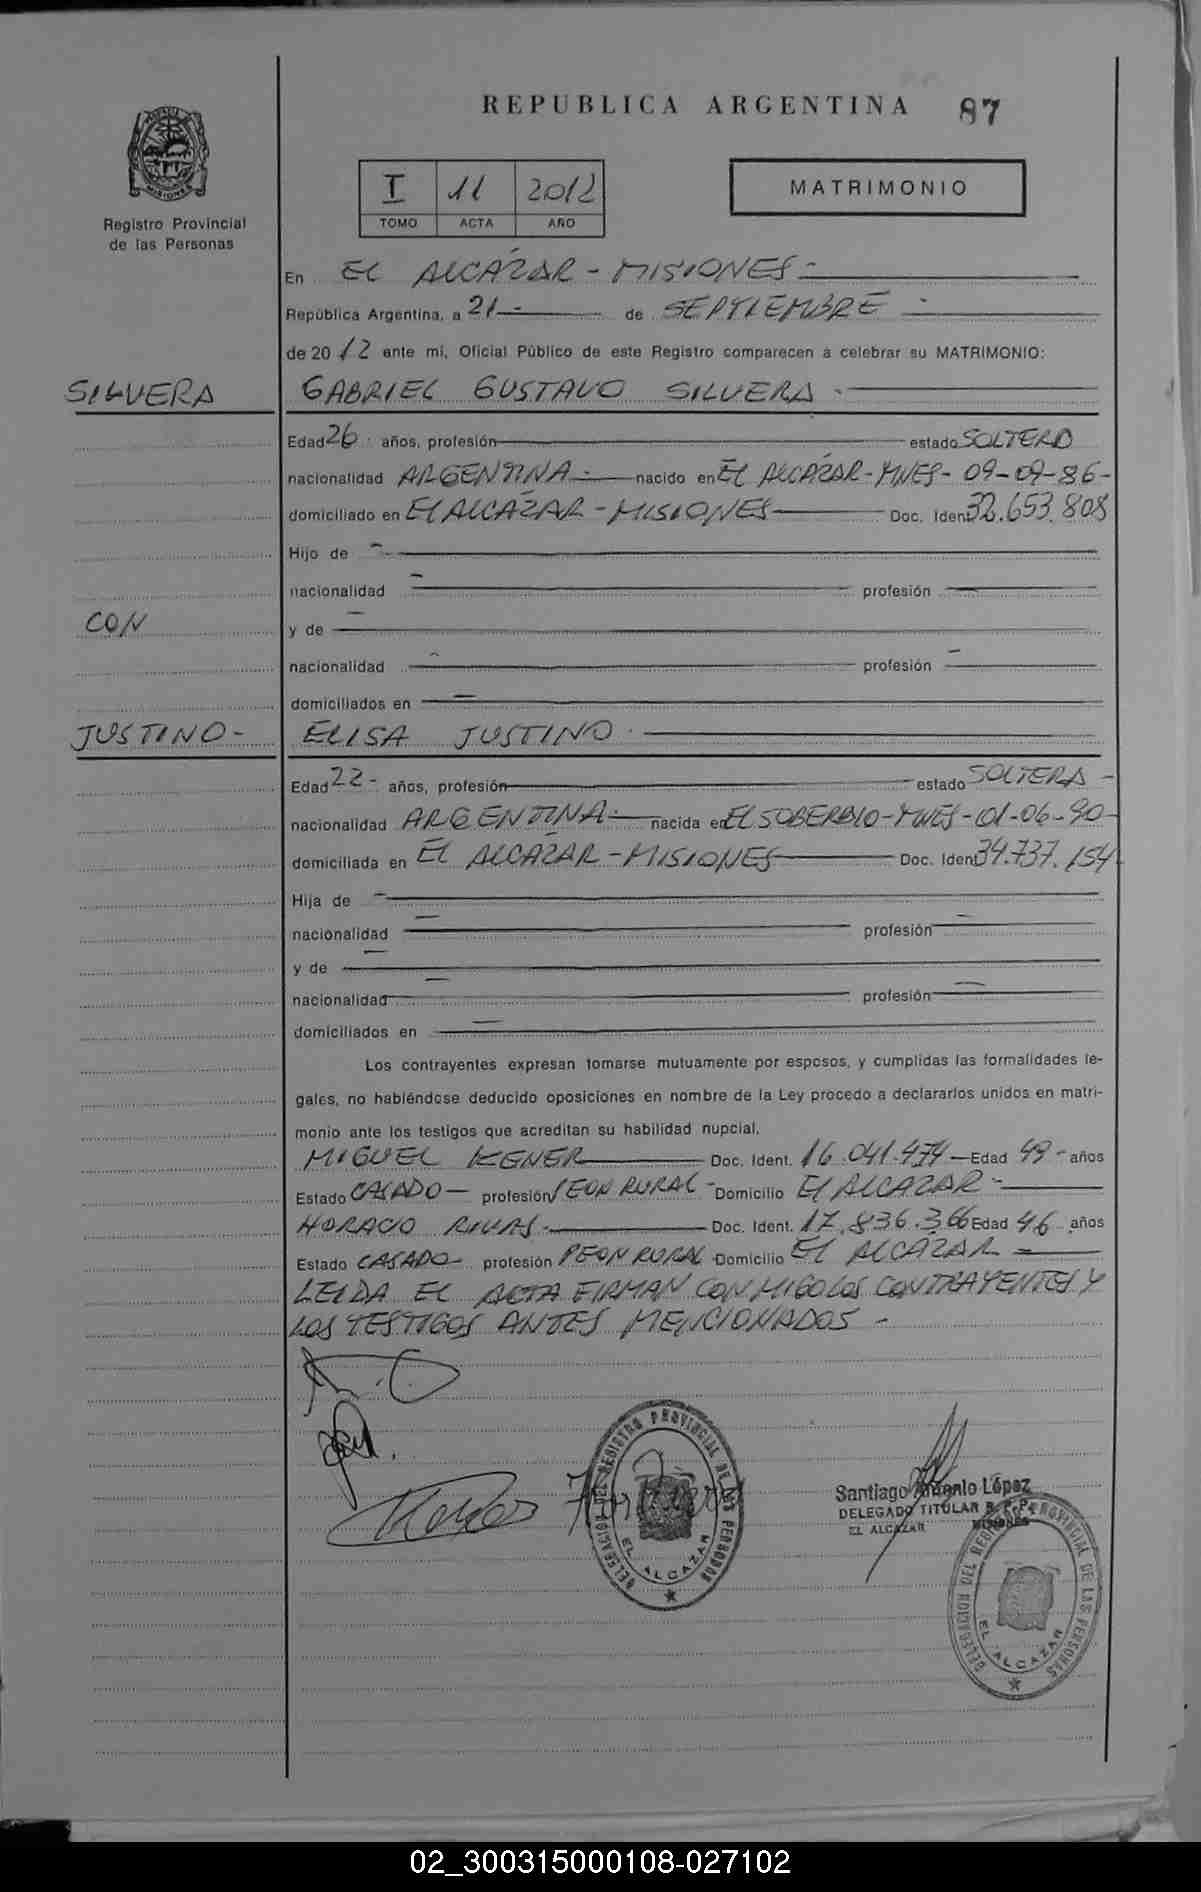 REPUBLICA ARGENTINA 87
Registro Provincial
de las Personas
I 11 2012
TOMO ACTA AÑO
MATRIMONIO
En EL ALCAZAR - MISIONES -
República Argentina, a 21 - de SEPTIEMBRE -
de 20 12 ante mi, Oficial Público de este Registro comparecen a celebrar su MATRIMONIO:
SILVERA GABRIEL GUSTAVO SILVERA -
Edad 26 años, profesión estado SOLTERO
nacionalidad ARGENTINA - nacido en EL ALCAZAR - MNES - 09-09-86-
domiciliado en EL ALCAZAR - MISIONES Doc. Ident. 32.653.808
Hijo de -
nacionalidad - profesión -
CON
y de -
nacionalidad - profesión -
domiciliados en -
JUSTINO - ELISA JUSTINO -
Edad 22 - años, profesión estado SOLTERA -
nacionalidad ARGENTINA - nacida en EL SOBERBIO - MNES - 01-06-90-
domiciliada en EL ALCAZAR - MISIONES Doc. Ident. 34.737.154
Hija de -
nacionalidad - profesión -
y de -
nacionalidad - profesión -
domiciliados en -
Los contrayentes expresan tomarse mutuamente por esposos, y cumplidas las formalidades le-
gales, no habiéndose deducido oposiciones en nombre de la Ley procedo a declararlos unidos en matri-
monio ante los testigos que acreditan su habilidad nupcial.
MIGUEL KENER Doc. Ident. 16.041.474 Edad 49 - años
Estado CASADO - profesión PEON RURAL - Domicilio EL ALCAZAR -
HORACIO RIVAS - Doc. Ident. 17.836.366 Edad 46 años
Estado CASADO - profesión PEON RURAL Domicilio EL ALCAZAR -
LEIDA EL ACTA FIRMAN CONMIGO LOS CONTRAYENTES Y
LOS TESTIGOS ANTES MENCIONADOS -
DELEGACION DEL REGISTRO PROVINCIAL DE LAS PERSONAS
EL ALCAZAR
Santiago Antonio López
DELEGADO TITULAR R. P. P.
EL ALCAZAR MISIONES
DELEGACION DEL REGISTRO PROVINCIAL DE LAS PERSONAS
EL ALCAZAR
02_300315000108-027102